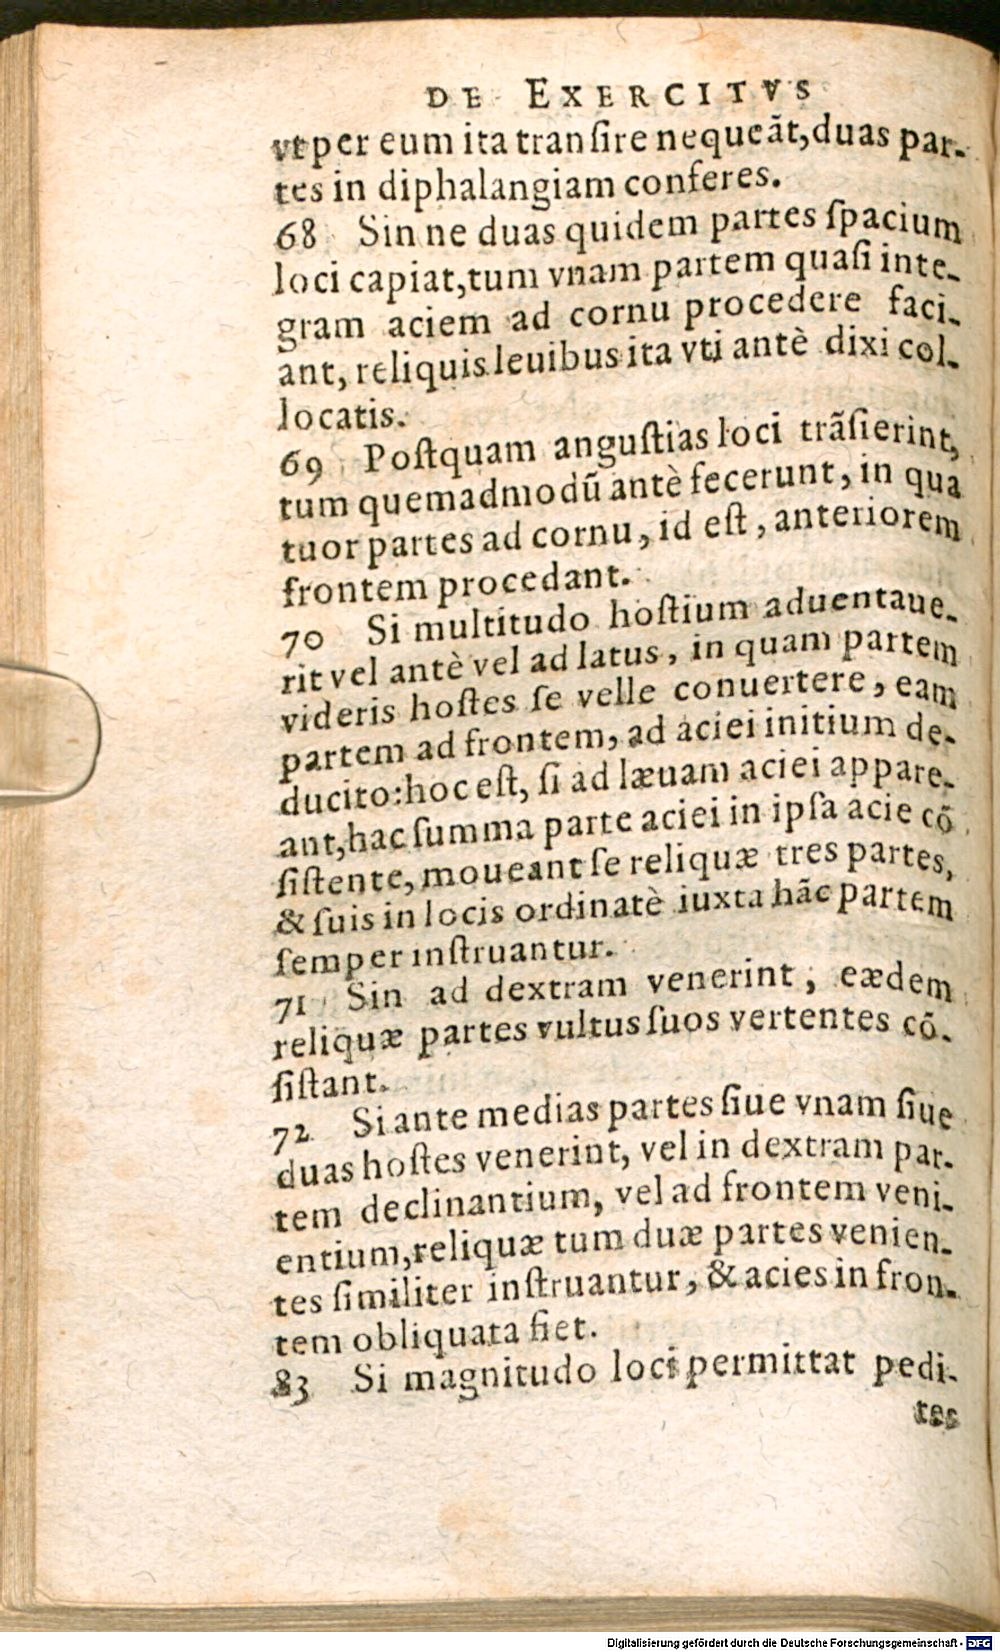 DE EXERCITVS
vt per eum ita tranſire nequeãt, duas par-
tes in diphalangiam conferes.
68 Sin ne duas quidem partes ſpacium
loci capiat, tum vnam partem quaſi inte-
gram aciem ad cornu procedere faci-
ant, reliquis leuibus ita vti antè dixi col-
locatis.
69 Poſtquam anguſtias loci trãſierint,
tum quemadmodũ antè fecerunt, in qua
tuor partes ad cornu, id eſt, anteriorem
frontem procedant.
70 Si multitudo hoſtium aduentaue-
rit vel antè vel ad latus, in quam partem
videris hoſtes ſe velle conuertere, eam
partem ad frontem, ad aciei initium de-
ducito: hoc eſt, ſi ad læuam aciei appare-
ant, hac ſumma parte aciei in ipſa acie cõ
ſiſtente, moueant ſe reliquæ tres partes,
& ſuis in locis ordinatè iuxta hãc partem
ſemper inſtruantur.
71 Sin ad dextram venerint, eædem
reliquæ partes vultus ſuos vertentes cõ-
ſiſtant.
72 Si ante medias partes ſiue vnam ſiue
duas hoſtes venerint, vel in dextram par-
tem declinantium, vel ad frontem veni-
entium, reliquæ tum duæ partes venien-
tes ſimiliter inſtruantur, & acies in fron-
tem obliquata fiet.
83 Si magnitudo loci permittat pedi-
tes
Digitalisierung gefördert durch die Deutsche Forschungsgemeinschaft - DFG